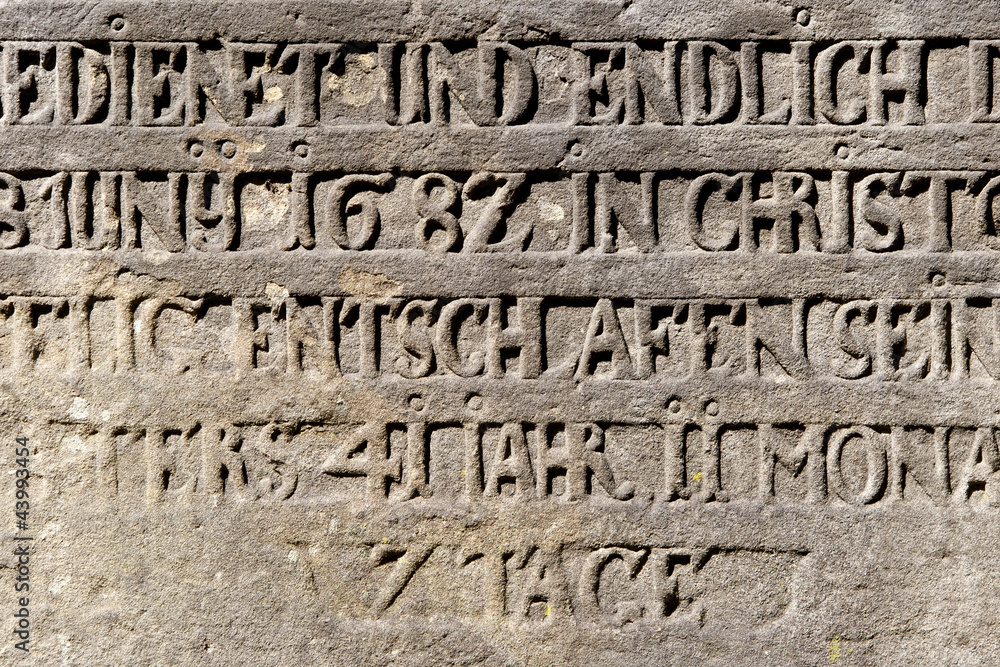 EDIENET UND ENDLICH D
8 IUNY 1682 IN CHRISTO
ELIG ENTSCHLAFEN SEIN
LTERS 41 IAHR 11 MONA
7 TAGE
Adobe Stock | #43993454